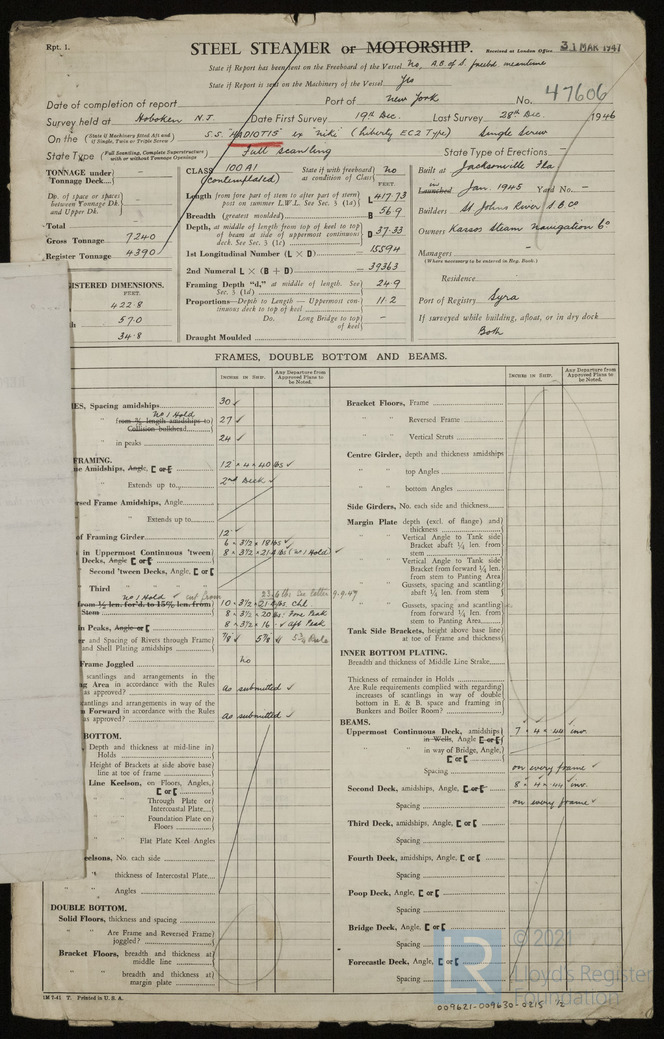 Rpt. 1.
STEEL STEAMER or MOTORSHIP.
Received at London Office 31 MAR 1947
State if Report has been sent on the Freeboard of the Vessel No, A.B. of S. freebd. meantime
State if Report is sent on the Machinery of the Vessel Yes
Date of completion of report
Port of New York
No. 47606
Survey held at Hoboken N.J. Date First Survey 19th Dec. Last Survey 28th Dec. 1946
On the (State if Machinery fitted Aft and if Single, Twin or Triple Screw) S.S. "HADIOTIS" ex "Niki" (Liberty EC2 Type) Single Screw
State Type (Full Scantling, Complete Superstructure with or without Tonnage Openings) Full Scantling State Type of Erections –
TONNAGE under Tonnage Deck
Do. of space or spaces between Tonnage Dk. and Upper Dk.
Total
Gross Tonnage 7240
Register Tonnage 4390
REGISTERED DIMENSIONS.
FEET.
422.8
57.0
34.8
CLASS 100A1 (contemplated) State if with freeboard as condition of class No
FEET.
Length from fore part of stem to after part of stern post on summer L.W.L. See Sec. 3 (1a) L 417.73
Breadth (greatest moulded) B 56.9
Depth, at middle of length from top of keel to top of beam at side of uppermost continuous deck. See Sec. 3 (1c) D 37.33
1st Longitudinal Number (L × D) 15594
2nd Numeral L × (B + D) 39363
Framing Depth "d," at middle of length. See Sec. 3 (1d) 24.9
Proportions—Depth to Length — Uppermost continuous deck to top of keel 11.2
Do. Long Bridge to top of keel –
Draught Moulded
Built at Jacksonville Fla
Launched Jan. 1945 Yard No. –
Builders St Johns River S.B. Co
Owners Karsos Steam Navigation Co
Managers –
(Where necessary to be entered in Reg. Book.)
Residence
Port of Registry Syra
If surveyed while building, afloat, or in dry dock
Both
FRAMES, DOUBLE BOTTOM AND BEAMS.
INCHES IN SHIP.
Any Departure from Approved Plans to be Noted.
INCHES IN SHIP.
Any Departure from Approved Plans to be Noted.
Spacing amidships 30 ✓
No 1 Hold
from ⅗ length amidships to Collision bulkhead 27 ✓
in peaks 24 ✓
FRAMING.
Amidships, Angle, [ or 12 × 4 × 40 lbs ✓
Extends up to 2nd Deck ✓
Frame Amidships, Angle
Extends up to
of Framing Girder 12 ✓
in Uppermost Continuous 'tween Decks, Angle [ or 6 × 3½ × 18 lbs ✓
8 × 3½ × 21.4 lbs (No 1 Hold) ✓
Second 'tween Decks, Angle, [ or
Third
No 1 Hold
10 × 3½ ×
Stem
8 × 3½ × 20 lbs. Fore Peak
in Peaks, Angle or [
8 × 3½ × 16 - ✓ Aft Peak
and Spacing of Rivets through Frame and Shell Plating amidships 7/8 ✓
Frame Joggled no
scantlings and arrangements in the Area in accordance with the Rules as approved? as submitted ✓
scantlings and arrangements in way of the Forward in accordance with the Rules as approved? as submitted ✓
BOTTOM.
Depth and thickness at mid-line in Holds
Height of Brackets at side above base line at toe of frame
Line Keelson, on Floors, Angles, [ or [
Through Plate or Intercoastal Plate
Foundation Plate on Floors
Flat Plate Keel Angles
No. each side
thickness of Intercostal Plate
Angles
DOUBLE BOTTOM.
Solid Floors, thickness and spacing
Are Frame and Reversed Frame joggled?
Bracket Floors, breadth and thickness at middle line
breadth and thickness at margin plate
Bracket Floors, Frame
Reversed Frame
Vertical Struts
Centre Girder, depth and thickness amidships
top Angles
bottom Angles
Side Girders, No. each side and thickness
Margin Plate depth (excl. of flange) and thickness
Vertical Angle to Tank side Bracket abaft ¼ len. from stem
Vertical Angle to Tank side Bracket from forward ¼ len. from stem to Panting Area
Gussets, spacing and scantling abaft ¼ len. from stem
Gussets, spacing and scantling from forward ¼ len. from stem to Panting Area
Tank Side Brackets, height above base line at toe of Frame and thickness
INNER BOTTOM PLATING.
Breadth and thickness of Middle Line Strake
Thickness of remainder in Holds
Are Rule requirements complied with regarding increases of scantlings in way of double bottom in E. & B. space and framing in Bunkers and Boiler Room?
BEAMS.
Uppermost Continuous Deck, amidships in Wells, Angle [ or [ 7 × 4 × .44 inv.
in way of Bridge, Angle, [ or [
Spacing on every frame ✓
Second Deck, amidships, Angle, [ or 8 × 4 × .44 inv.
Spacing on every frame ✓
Third Deck, amidships, Angle, [ or [
Spacing
Fourth Deck, amidships, Angle, [ or [
Spacing
Poop Deck, Angle [ or [
Spacing
Bridge Deck, Angle [ or [
Spacing
Forecastle Deck, Angle, [ or [
Spacing
1M 7-41 T. Printed in U.S.A.
LR
© 2021
Lloyd's Register
Foundation
009621-009630-0215 1/2